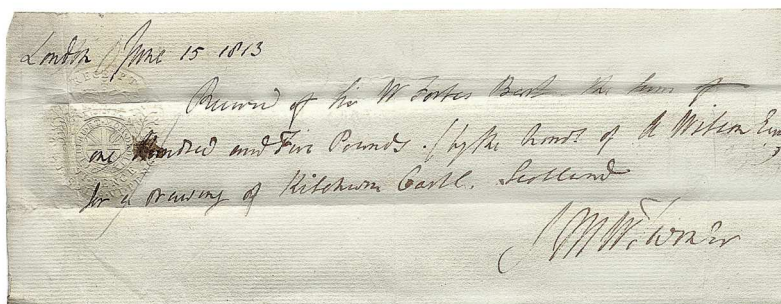 London June 15 1813
RECEIPT
Received of Sir W Forbes Bart the sum of
one Hundred and Five Pounds. (by the hands of A Wilson Esq
for a Drawing of Kilchurn Castle. Scotland
J M W Turner